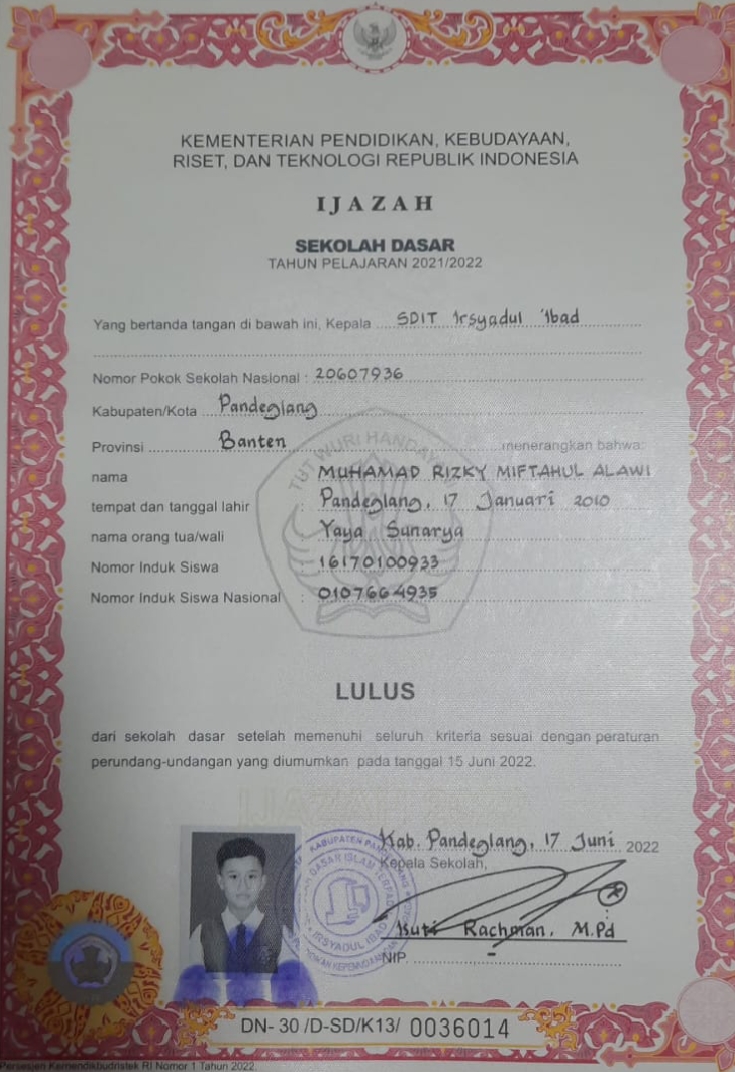 KEMENTERIAN PENDIDIKAN, KEBUDAYAAN,
RISET, DAN TEKNOLOGI REPUBLIK INDONESIA
IJAZAH
SEKOLAH DASAR
TAHUN PELAJARAN 2021/2022
Yang bertanda tangan di bawah ini, Kepala SDIT Irsyadul 'Ibad
Nomor Pokok Sekolah Nasional : 20607936
Kabupaten/Kota Pandeglang
Provinsi Banten menerangkan bahwa:
TUT WURI HANDAYANI
nama : MUHAMAD RIZKY MIFTAHUL ALAWI
tempat dan tanggal lahir : Pandeglang, 17 Januari 2010
nama orang tua/wali : Yaya Sunarya
Nomor Induk Siswa : 16170100933
Nomor Induk Siswa Nasional : 0107664935
LULUS
dari sekolah dasar setelah memenuhi seluruh kriteria sesuai dengan peraturan
perundang-undangan yang diumumkan pada tanggal 15 Juni 2022.
Kab. Pandeglang, 17 Juni 2022
Kepala Sekolah,
KABUPATEN
DASAR ISLAM TERPADU
IRSYADUL IBAD
Rachman, M.Pd
NIP -
DN- 30 /D-SD/K13/ 0036014
Persesjen Kemendikbudristek RI Nomor 1 Tahun 2022